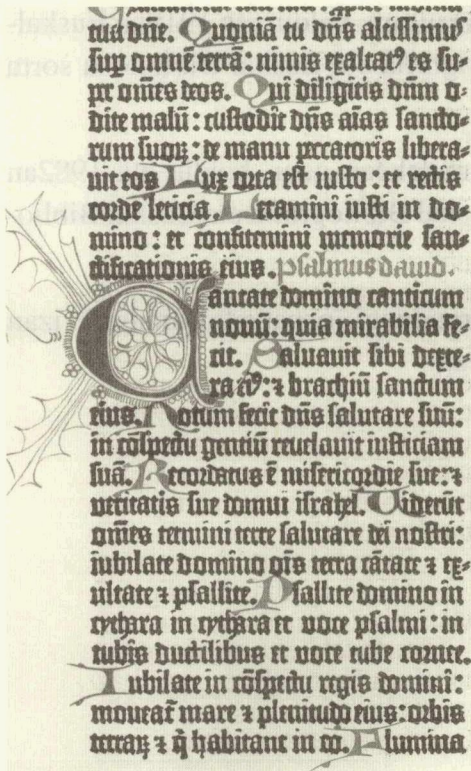 tua dñe. Quoniā tu dñs altissimꝰ
suꝑ omnē terrā: nimis exaltatꝰ es su⸗
per oīnes deos. Qui diligitis dūm o⸗
dite malū: custodit dñs aīas sancto⸗
rum suoꝝ: de manu peccatoris libera⸗
uit eos. Lux orta est iusto: et rectis
corde leticia. Letamini iusti in do⸗
mino: et confitemini memorie san⸗
ctificationis eius. psalmus dauid.
Cantate domino canticum
nouū: quia mirabilia fe⸗
cit. Saluauit sibi dexte⸗
ra eiꝰ: ⁊ brachiū sanctum
eius. Notum fecit dñs salutare suū:
in cōspectu gentiū reuelauit iusticiam
suā. Recordatus ē misericordie sue: ⁊
veritatis sue domui israhel. Uiderūt
omēs termini terre salutare dei nostri:
iubilate domino oīs terra cātate ⁊ ex⸗
ultate ⁊ psallite. Psallite domino in
cythara in cythara et voce psalmi: in
tubis ductilibus et voce tube cornee.
Iubilate in cōspectu regis domini:
moueaꞇ̄ mare ⁊ plenitudo eius: orbis
terraꝝ ⁊ q̄ habitant in eo. Flumina